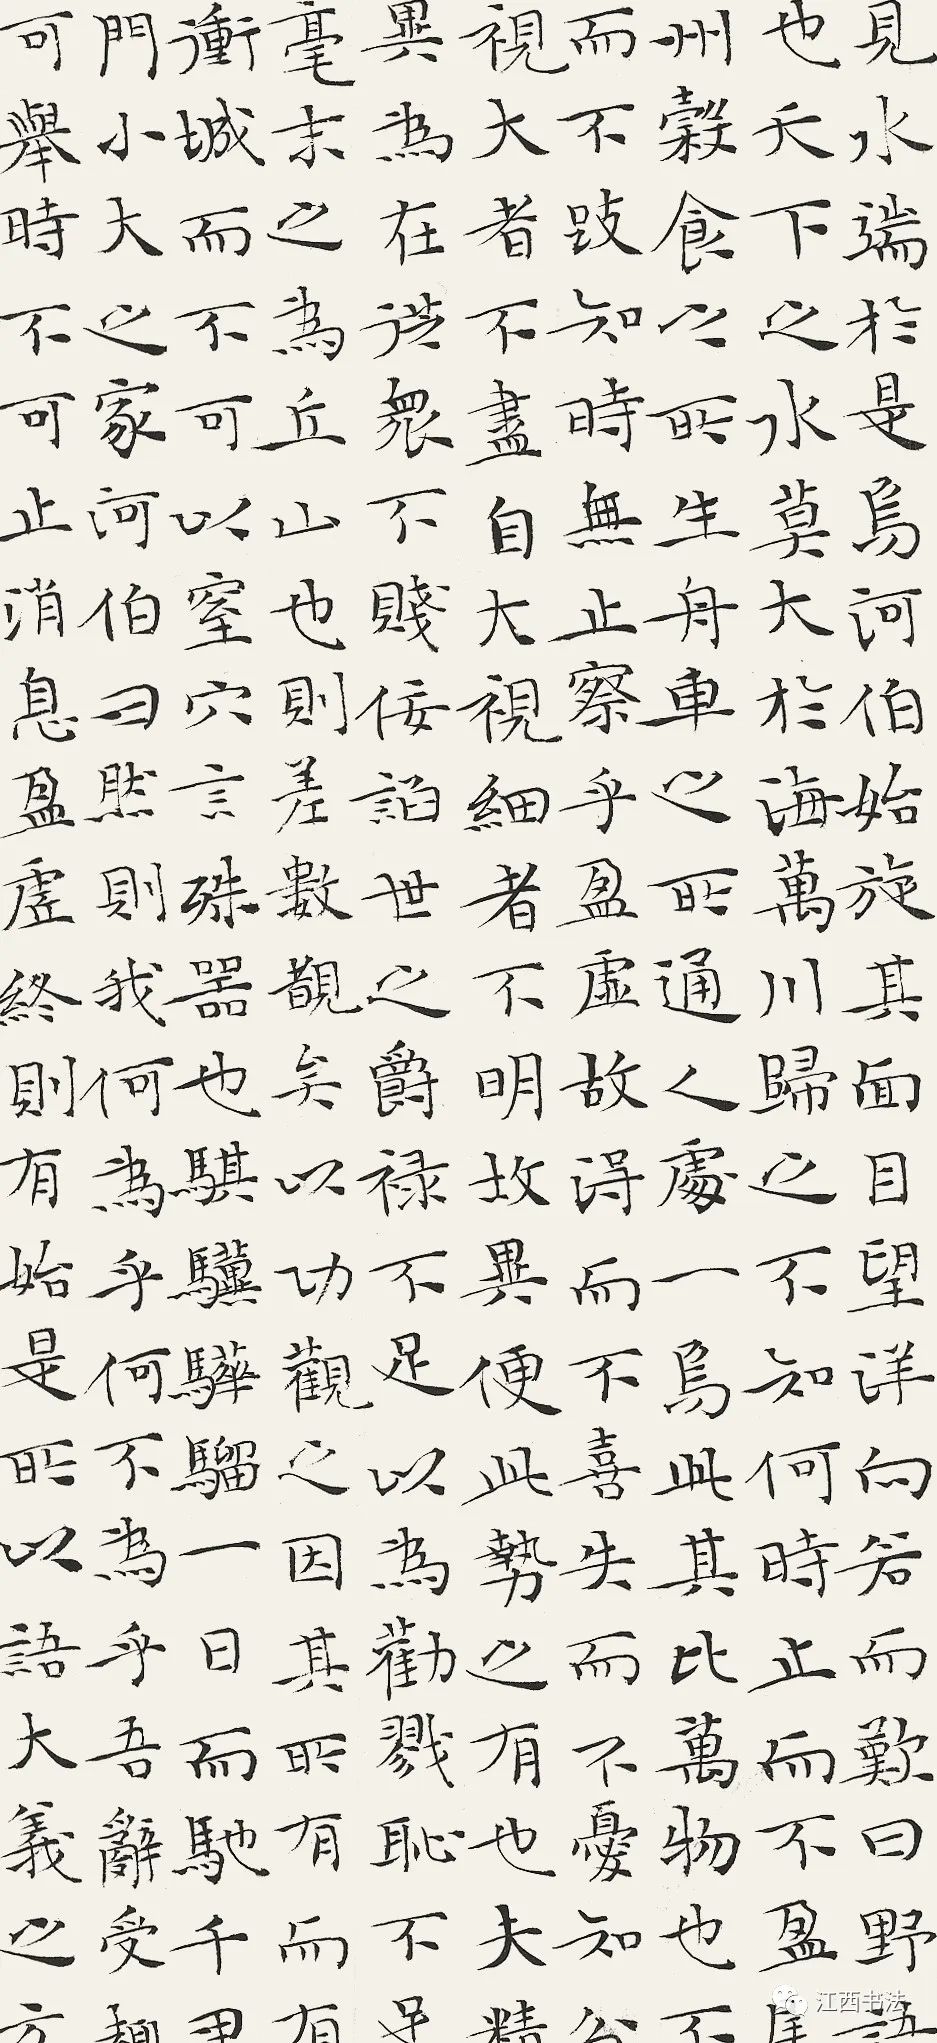 見水端於是焉河伯始旋其面目望洋向若而歎曰野語
也天下之水莫大於海萬川歸之不知何時止而不盈尾
州穀食之所生舟車之所通人處一焉此其比萬物也不
而不跂知時無止察乎盈虛故得而不喜失而不憂知分
視大者不盡自大視細者不明故異便此勢之有也夫精
異為在從眾不賤佞諂世之爵祿不足以為勸戮恥不足
毫末之為丘山也則差數覩矣以功觀之因其所有而有
衝城而不可以窒穴言殊器也騏驥驊騮一日而馳千里
門小大之家河伯曰然則我何為乎何不為乎吾辭受趣
可舉時不可止消息盈虛終則有始是所以語大義之方
江西书法